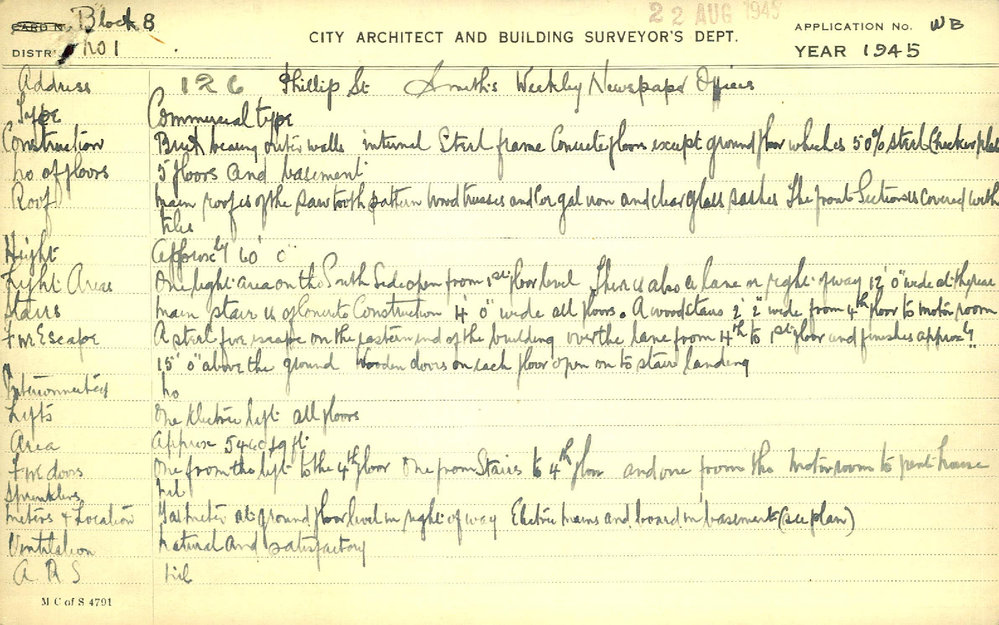 CARD No. Block 8
22 AUG 1945
DISTRICT No 1
CITY ARCHITECT AND BUILDING SURVEYOR'S DEPT.
APPLICATION No. WB
YEAR 1945
Address 126 Phillip St Smith's Weekly Newspaper Offices
Type Commercial type
Construction Brick bearing outer walls internal Steel frame Concrete floors except ground floor which is 50% steel Checker plate
No of floors 5 floors and basement
Roof Main roof is of the saw tooth pattern wood trusses and Cor gal iron and clear glass sashes The front Section is Covered with
tiles
Hight Approxly 60' 0"
Light Areas One light area on the South Side open from 1st floor level There is also a lane or right of way 12' 0" wide at the rear
Stairs Main stair is of Concrete Construction 4' 0" wide all floors. A wood stairs 2' 2" wide from 4th floor to motor room
Fire Escape A steel fire escape on the eastern end of the building over the lane from 4th to 1st floor and finishes approxly
15' 0" above the ground Wooden doors on each floor open on to stair landing
Interconnected No
Lifts One Electric lift all floors
Area Approx sq ft
Fire doors One from the lift to the 4th floor One from Stairs to 4th floor and one from the Motor room to pent house
Sprinklers Nil
Meters & Location Gas meter at ground floor level in right of way Electric mains and board in basement (see plan)
Ventilation Natural and satisfactory
A. R S Nil
M C of S 4791